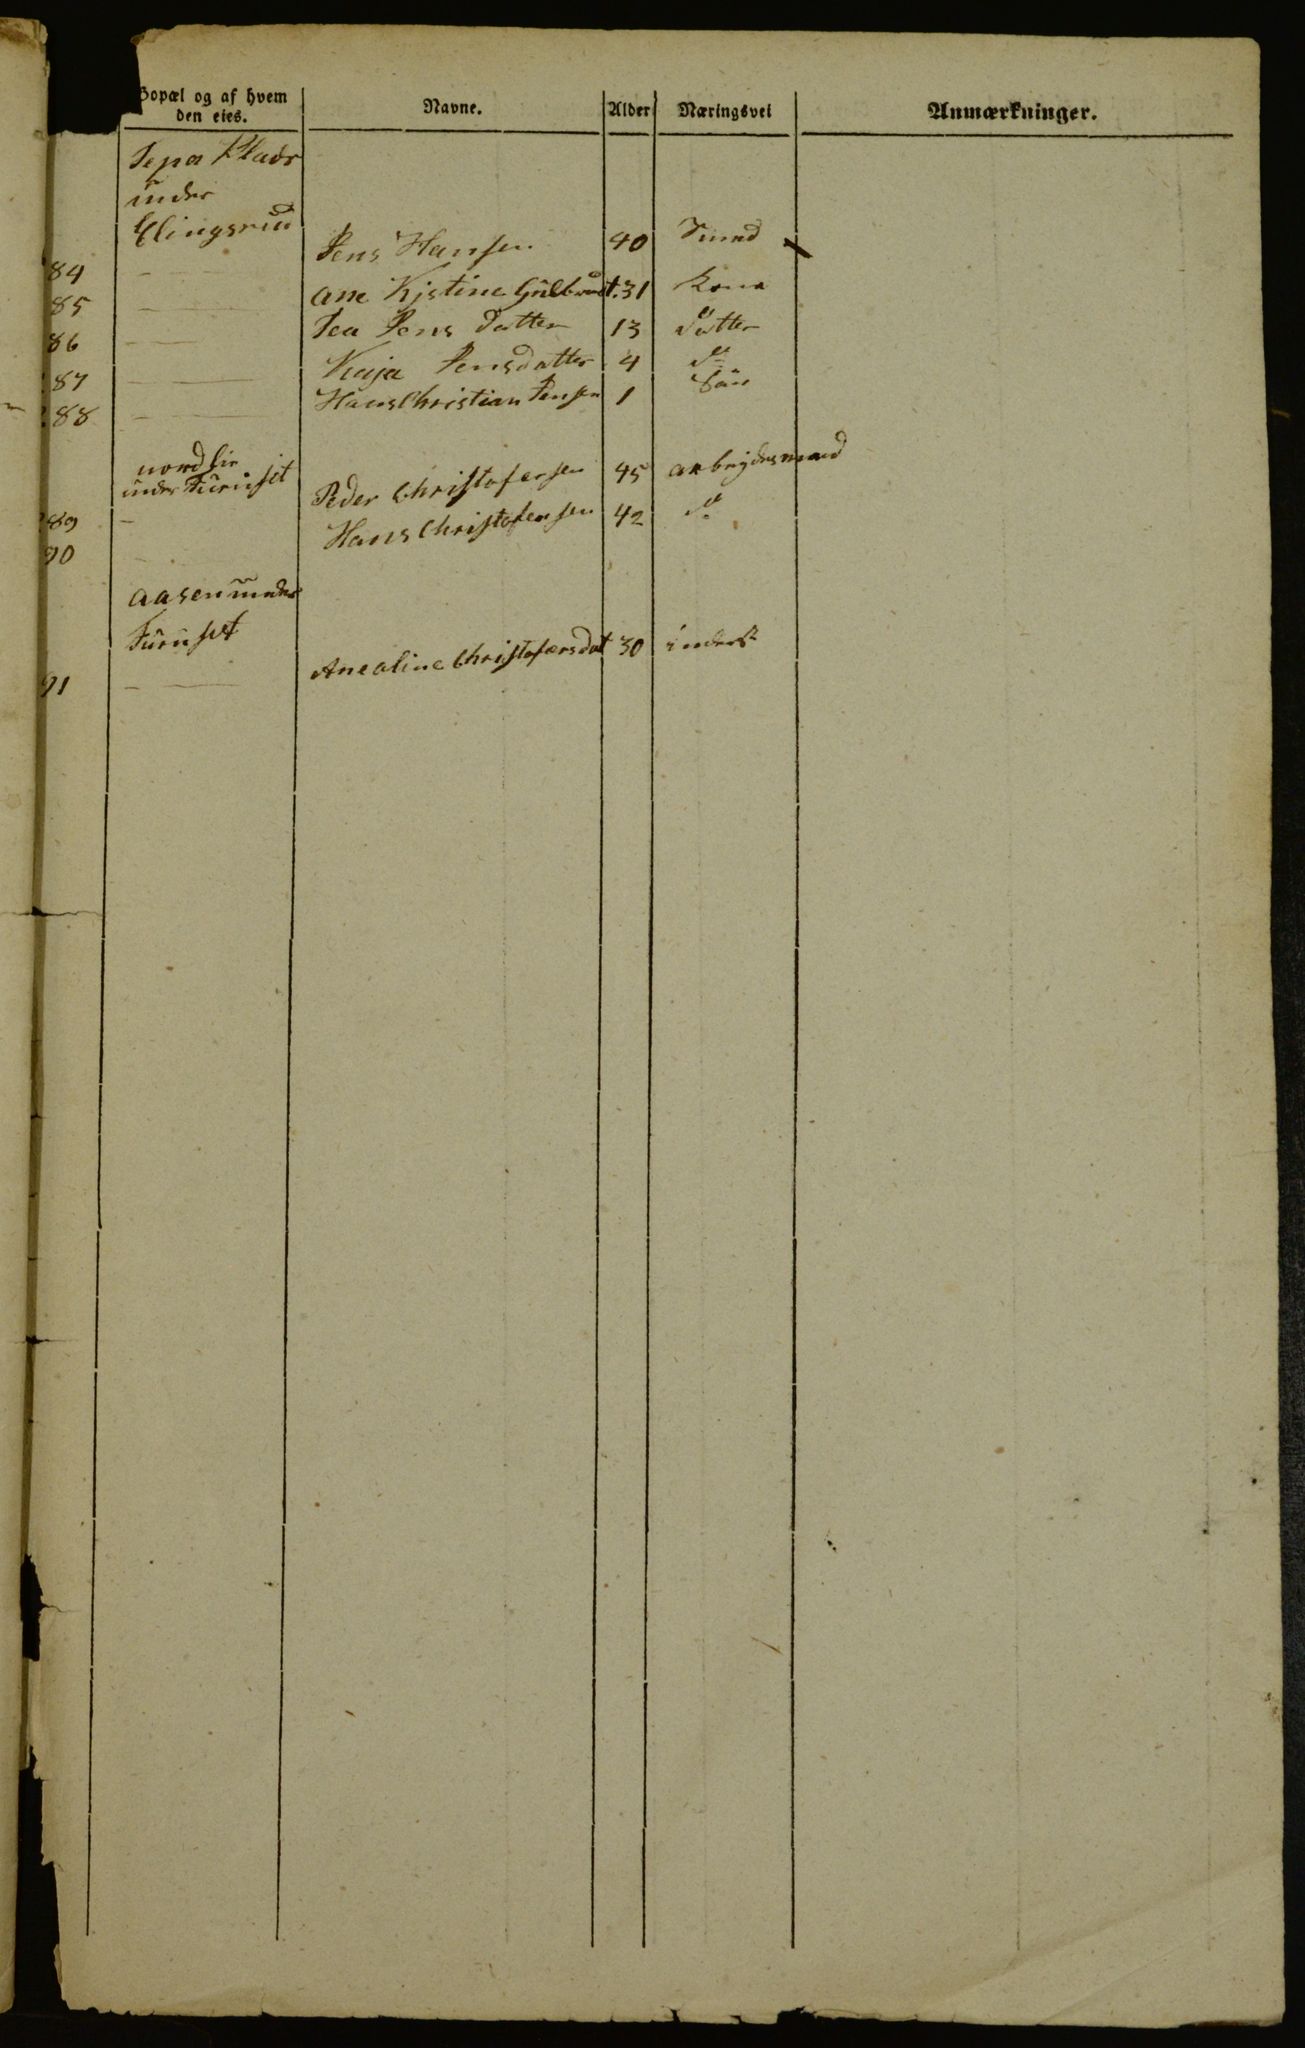 Bopæl og af hvem den eies. Navne. Alder Næringsvei Anmærkninger.
Sepa Plads
under
Elingsrud
84 Jens Hansen 40
85 Ane Kjstine Gulbrandt. 31 Kona
86 Tea Jens Datter 13 Datter
87 Kaja Jensdatter 4 do
88 Hans Christian Jensen 1 Sön
nordlie
under Furuset
89 Peder Christofersen 45 arbejdsmand
90 Hans Christofersen 42 do
aasen under
Furuset
91 Aneoline Christofersdat 30 inderst